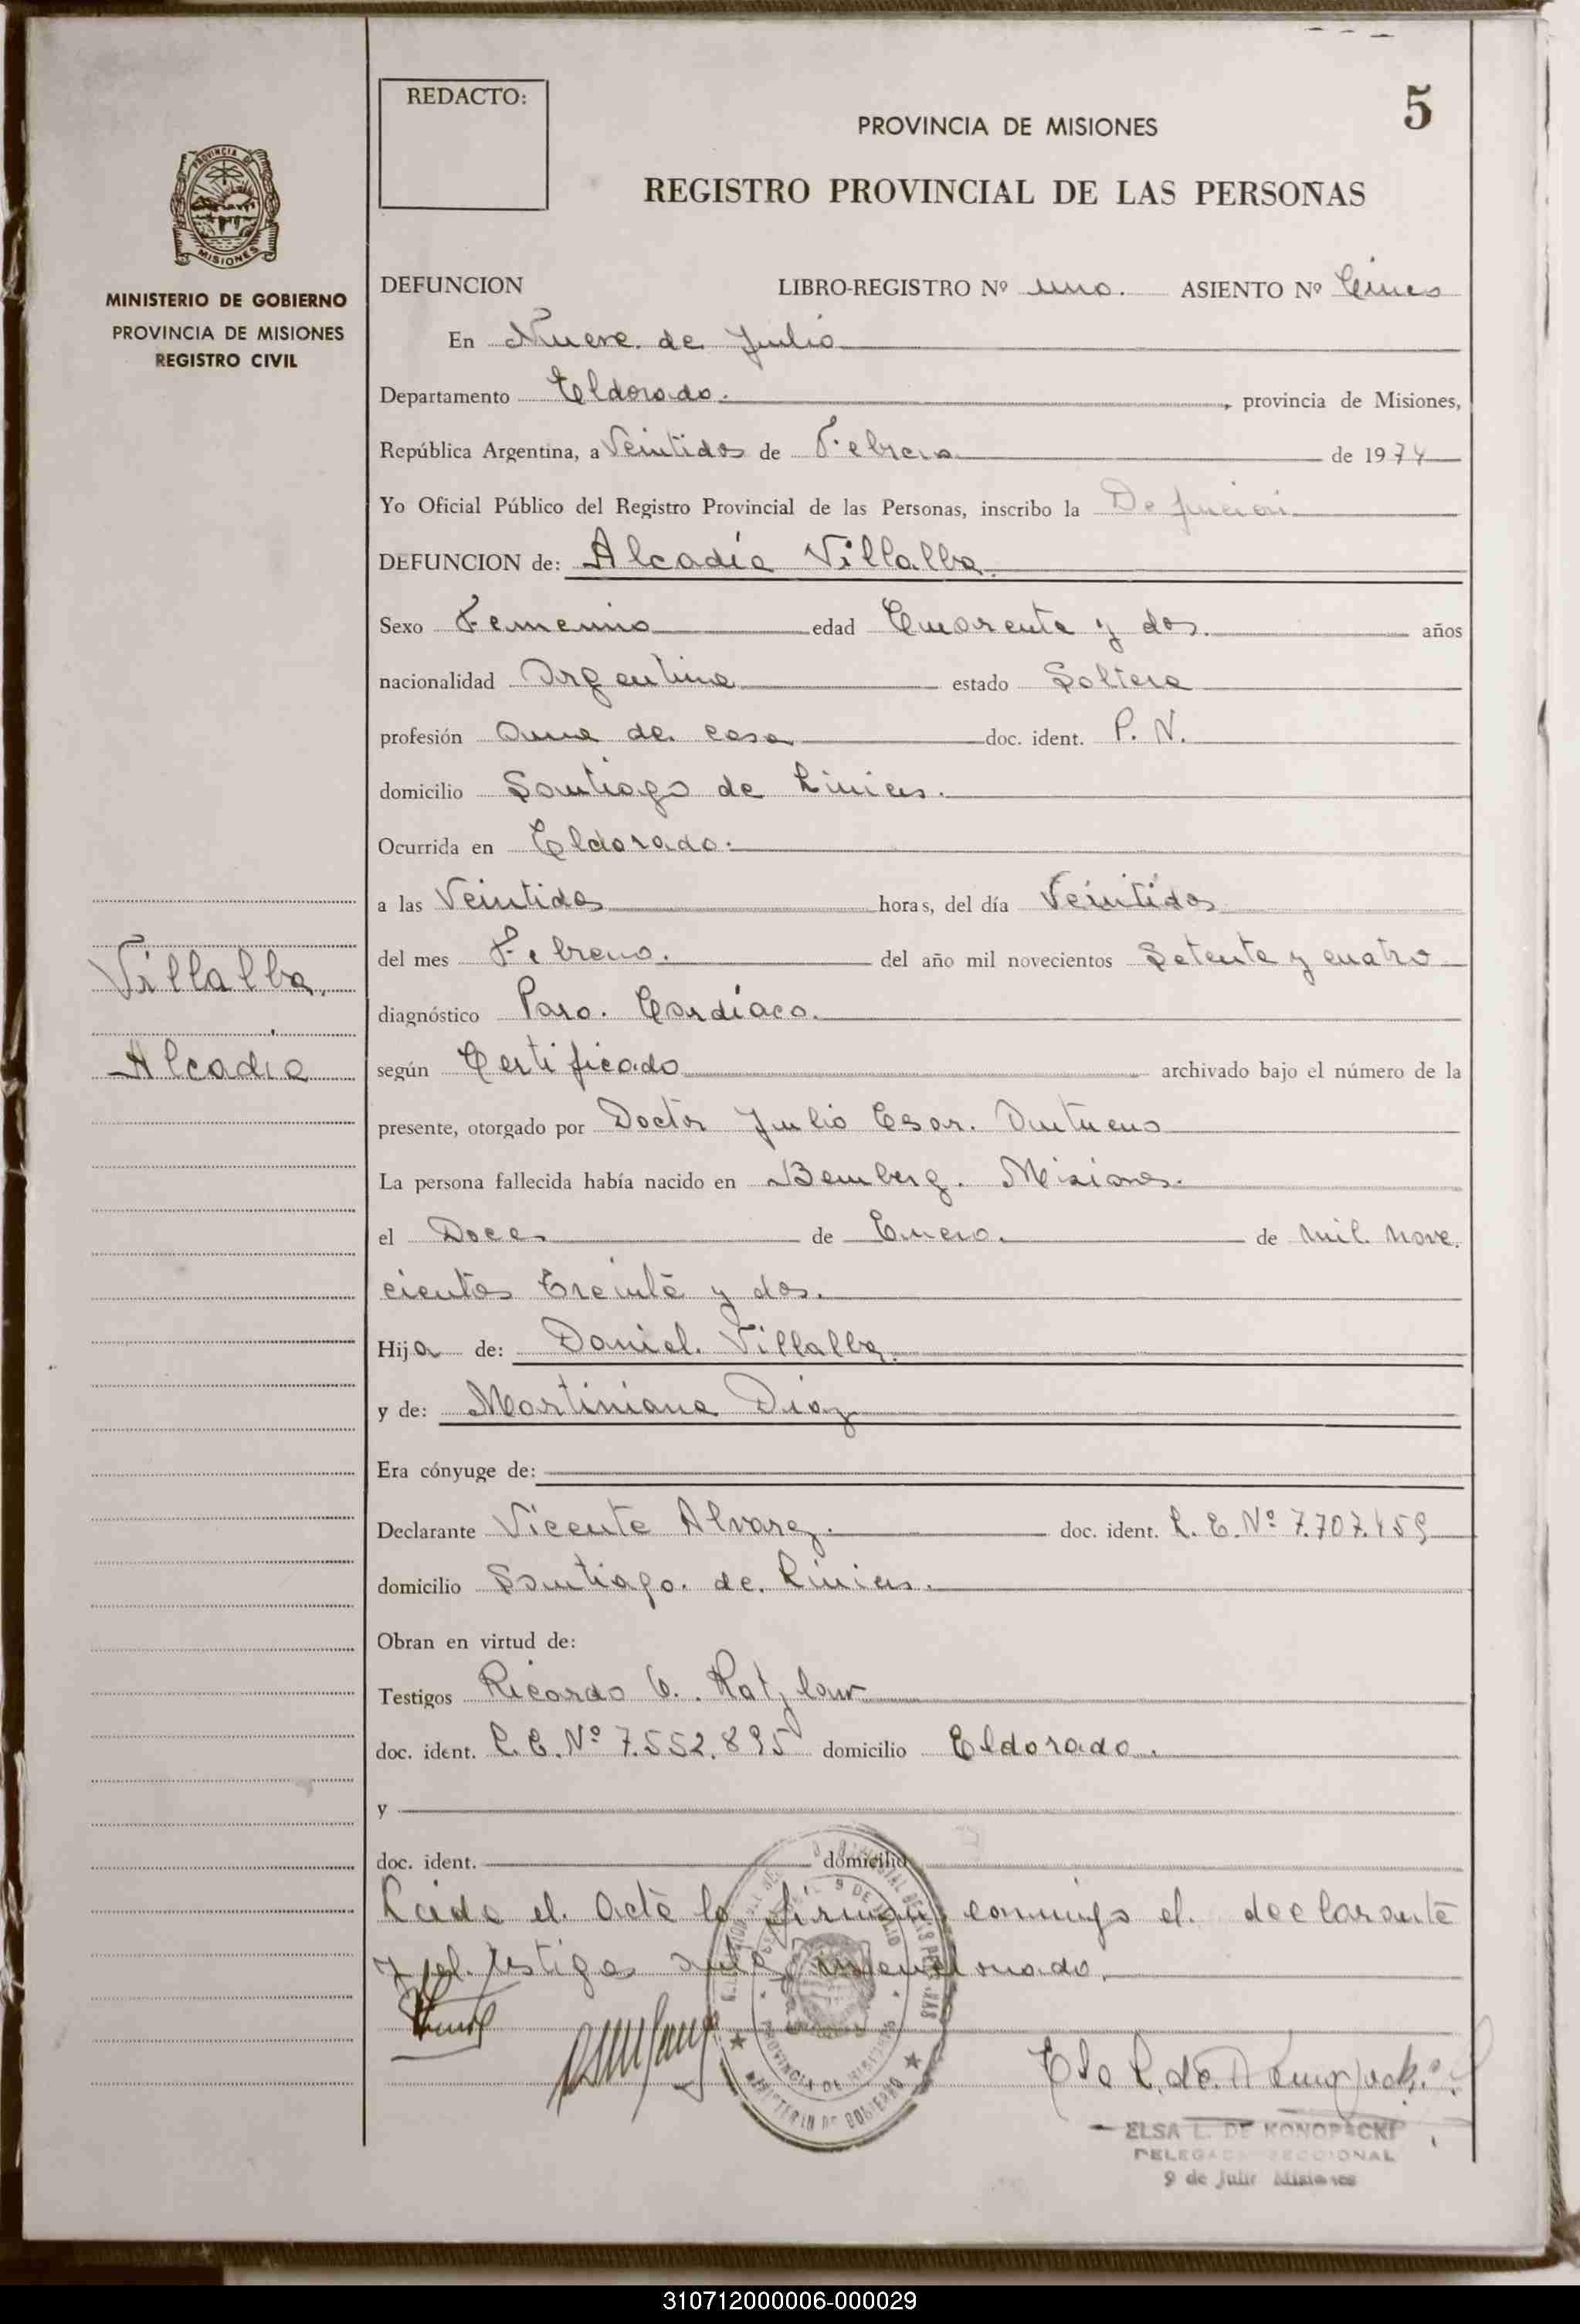 REDACTO:
5
PROVINCIA DE MISIONES
REGISTRO PROVINCIAL DE LAS PERSONAS
PROVINCIA DE MISIONES
MINISTERIO DE GOBIERNO
PROVINCIA DE MISIONES
REGISTRO CIVIL
DEFUNCION LIBRO-REGISTRO Nº uno. ASIENTO Nº Cinco
En Nueve de Julio
Departamento Eldorado. , provincia de Misiones,
República Argentina, a Veintidos de Febrero de 1974
Yo Oficial Público del Registro Provincial de las Personas, inscribo la Defunción
DEFUNCION de: Alcadía Villalba.
Sexo Femenino edad Cuarenta y dos. años
nacionalidad Argentina estado Soltera
profesión Ama de casa doc. ident. P. N.
domicilio Santiago de Liniers.
Ocurrida en Eldorado.
a las Veintidos horas, del día Veintidos
del mes Febrero. del año mil novecientos Setenta y cuatro
diagnóstico Paro. Cardíaco.
según Certificado archivado bajo el número de la
presente, otorgado por Doctor Julio Cesar.
La persona fallecida había nacido en Bemberg. Misiones.
el Doce de Enero. de mil. nove.
cientos treinta y dos.
Hija de: Daniel. Villalba.
y de: Martiniana Diaz
Era cónyuge de:
Declarante Vicente Alvarez. doc. ident. L. E. Nº 7.707.459
domicilio Santiago. de. Liniers.
Obran en virtud de:
Testigos Ricardo
doc. ident. L. E. Nº 7.552.895 domicilio Eldorado.
y
doc. ident. domicilio
Leida el. Acta la firman conmigo el. declarante
y el. testigo ante mencionado.
Villalba.
Alcadia
PROVINCIA DE MISIONES
MINISTERIO DE GOBIERNO
ELSA L. DE KONOPACKI
DELEGADA SECCIONAL
9 de Julio Misiones
310712000006-000029